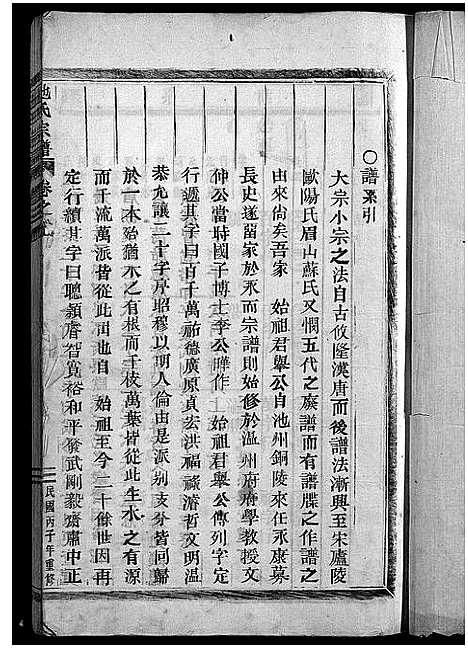 ○譜系引
大宗小宗之法自古攸隆漢唐而後譜法漸興至宋廬陵
歐陽氏眉山蘇氏又憫五代之廢譜而有譜牒之作譜之
由來尙矣吾家 始祖君舉公自池州銅陵來任永康募
長史遂留家於永而宗譜則始修於溫州府府學教授文
仲公當時國子博士李公曄作 始祖君舉公傳列字定
行遞其字曰百千萬祐德廣原貞宏洪福祿濬哲文明温
恭允讓二十字序昭穆以明人倫由是派別支分皆同歸
於一本殆猶木之有根而千枝萬葉皆從此生水之有源
而千流萬派皆從此出也自 始祖至今二十餘世因再
定行續其字曰聰顯睿智寬裕和平發武剛毅齋肅中正
氏宗譜 卷之
民國丙子年重修